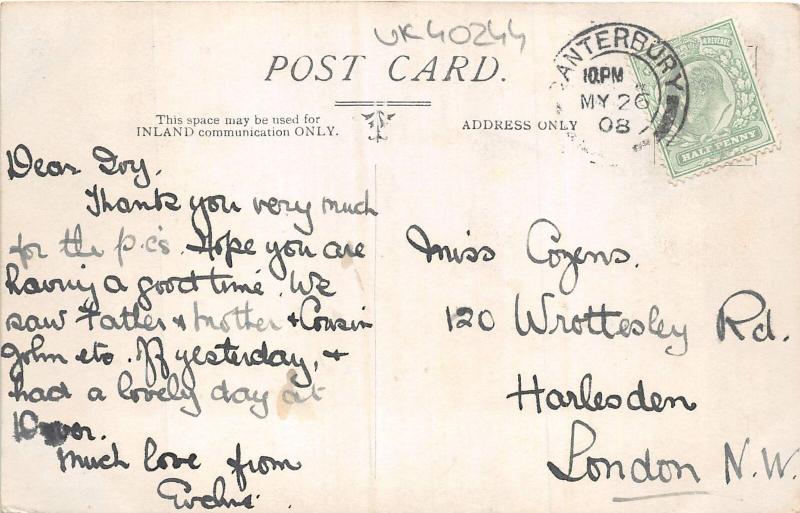 UK40244
POST CARD.
This space may be used for
INLAND communication ONLY.
ADDRESS ONLY
CANTERBURY
10.PM
MY 26
08
REVENUE
HALF PENNY
Dear Ivy.
Thank you very much
for the p.c's. Hope you are
having a good time. We
saw Father & Mother & Cousin
John etc. off yesterday, &
had a lovely day at
Dover.
Much love from
Miss Cozens.
120 Wrottesley Rd.
Harlesden
London N.W.